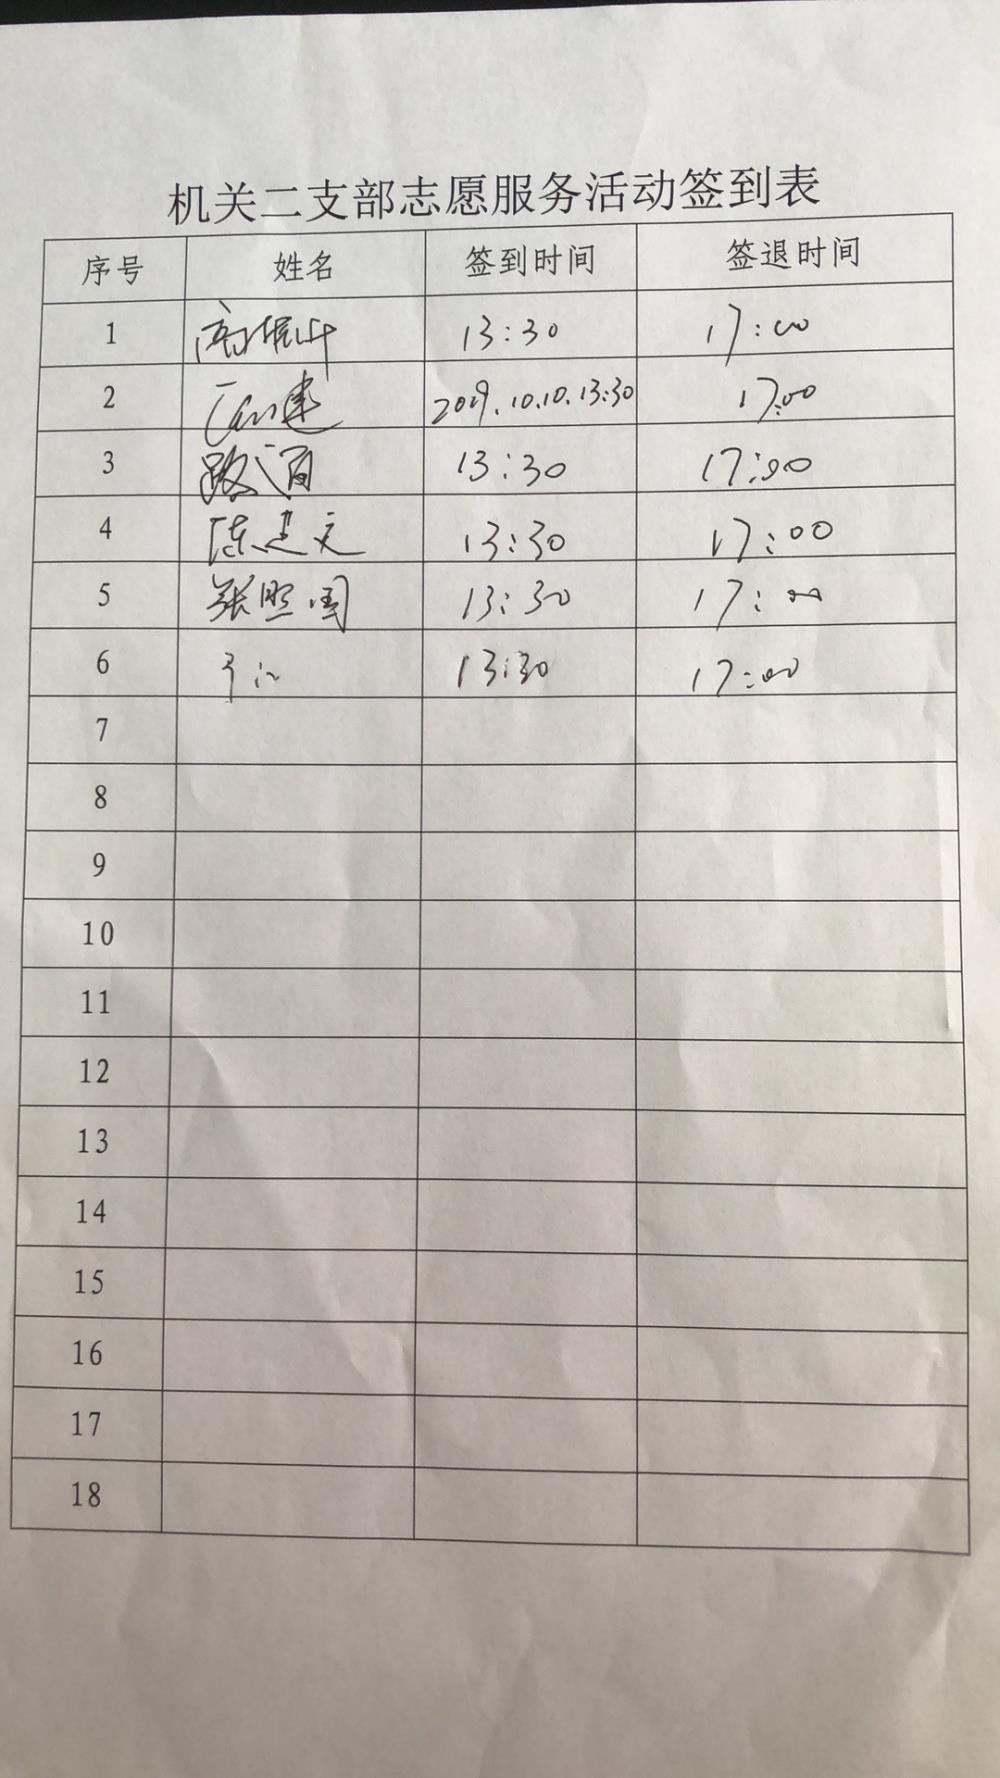 机关二支部志愿服务活动签到表
序号 姓名 签到时间 签退时间
1 高振华 13:30 17:00
2 2019.10.10.13:30 17:00
3 路 13:30 17:00
4 陈建文 13:30 17:00
5 张照国 13:30 17:00
6 13:30 17:00
7
8
9
10
11
12
13
14
15
16
17
18